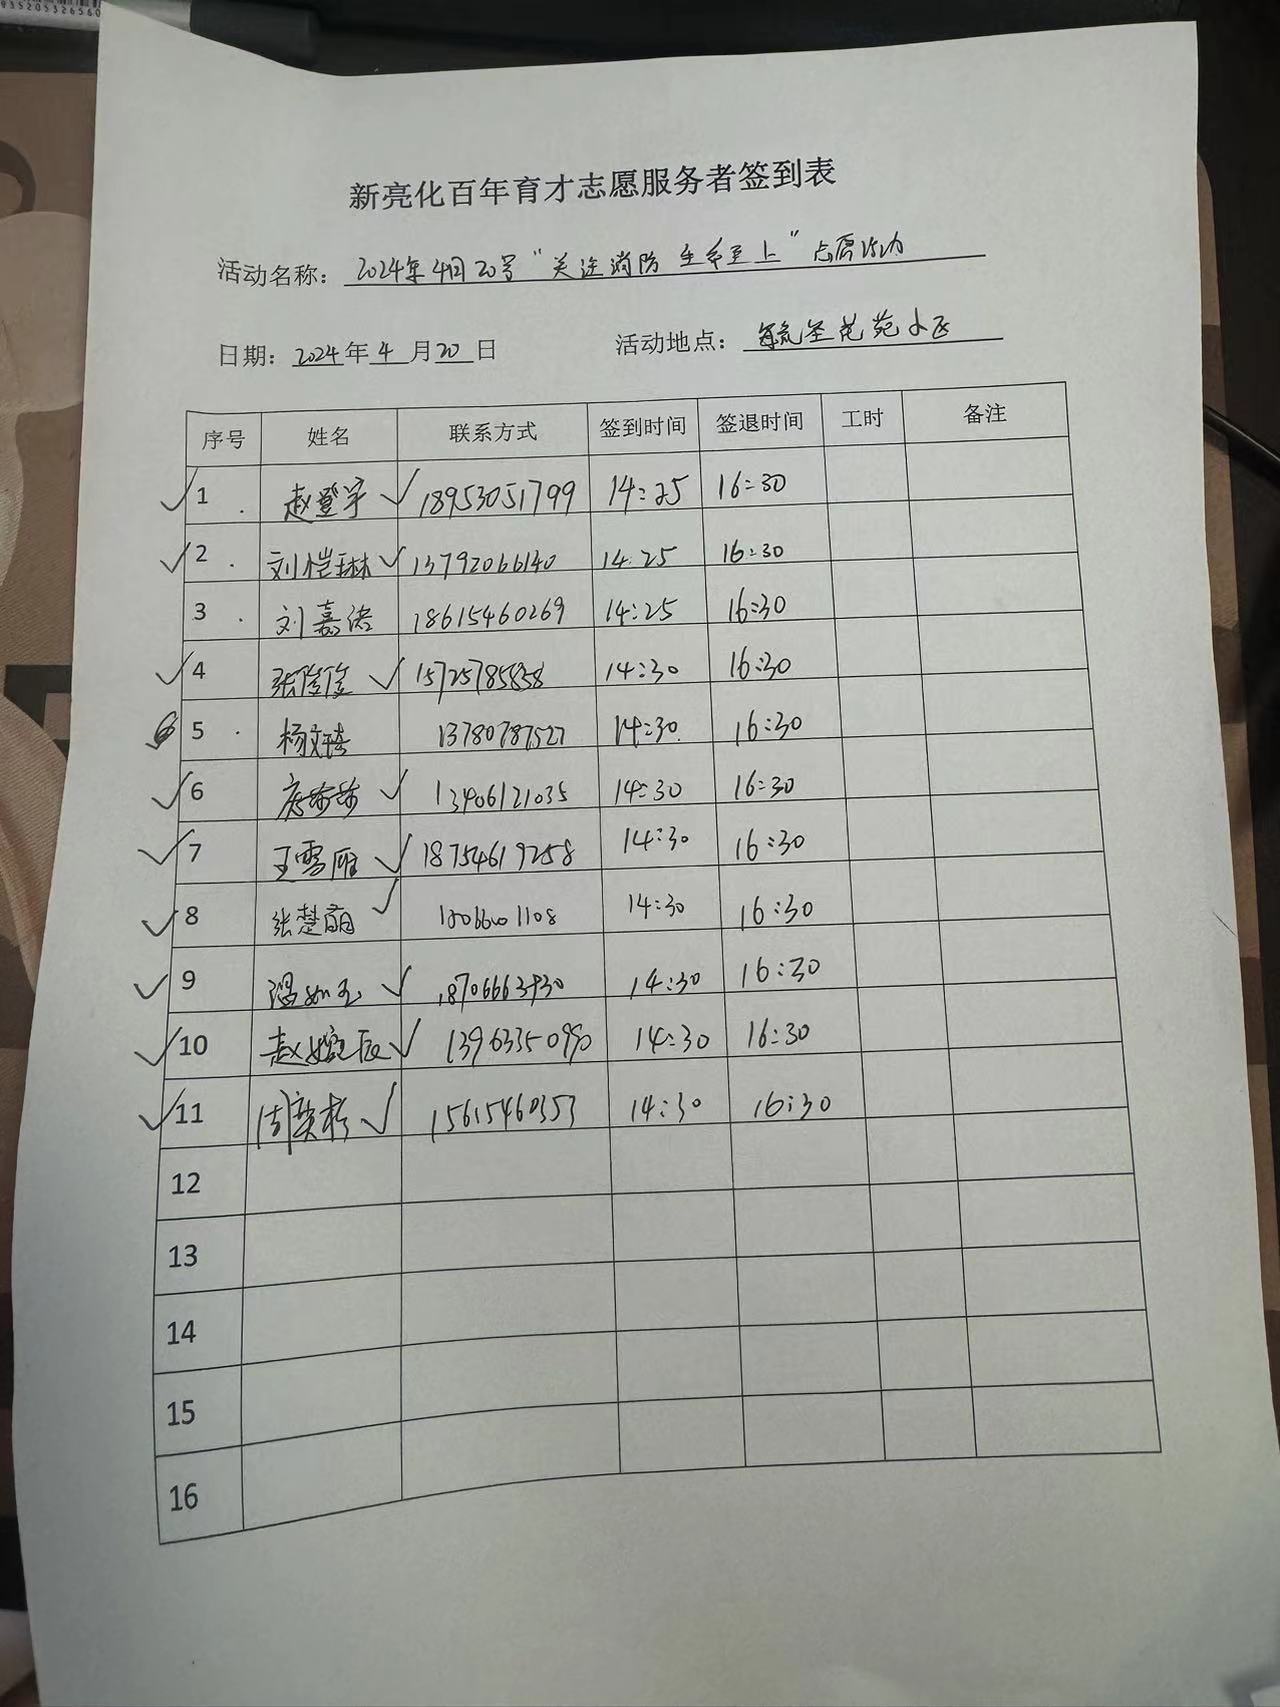 新亮化百年育才志愿服务者签到表
活动名称: 2024年4月20号“关注消防 生命至上”志愿活动
日期: 2024年4月20日 活动地点: 毓圣花苑小区
序号 姓名 联系方式 签到时间 签退时间 工时 备注
1 赵登宇 18953051799 14:25 16:30
2 刘恺琳 13792066140 14:25 16:30
3 刘嘉诺 18615460269 14:25 16:30
4 张 15725785858 14:30 16:30
5 杨文 13780787527 14:30 16:30
6 14:30 16:30
7 王雪雁 18754619258 14:30 16:30
8 张楚萌 14:30 16:30
9 温如玉 14:30 16:30
10 赵 辰 14:30 16:30
11 周 15615460353 14:30 16:30
12
13
14
15
16